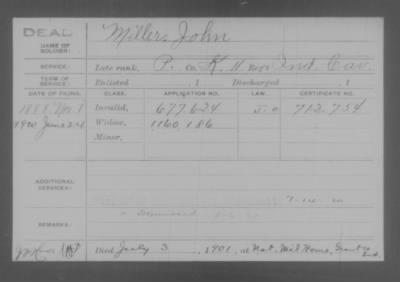 DEAD
NAME OF SOLDIER:
Miller, John
SERVICE:
Late rank, P. Co. K, 11 Reg't Ind. Cav.
TERM OF SERVICE:
Enlisted , 1 Discharged , 1
DATE OF FILING. CLASS. APPLICATION NO. LAW. CERTIFICATE NO.
1888 Nov. 1 Invalid, 677624 J. O 712.754
1920 June 24 Widow, 1160,186
Minor,
ADDITIONAL SERVICES:
REMARKS:
Died July 3, 1901, at Nat. Mil. Home, Ind.